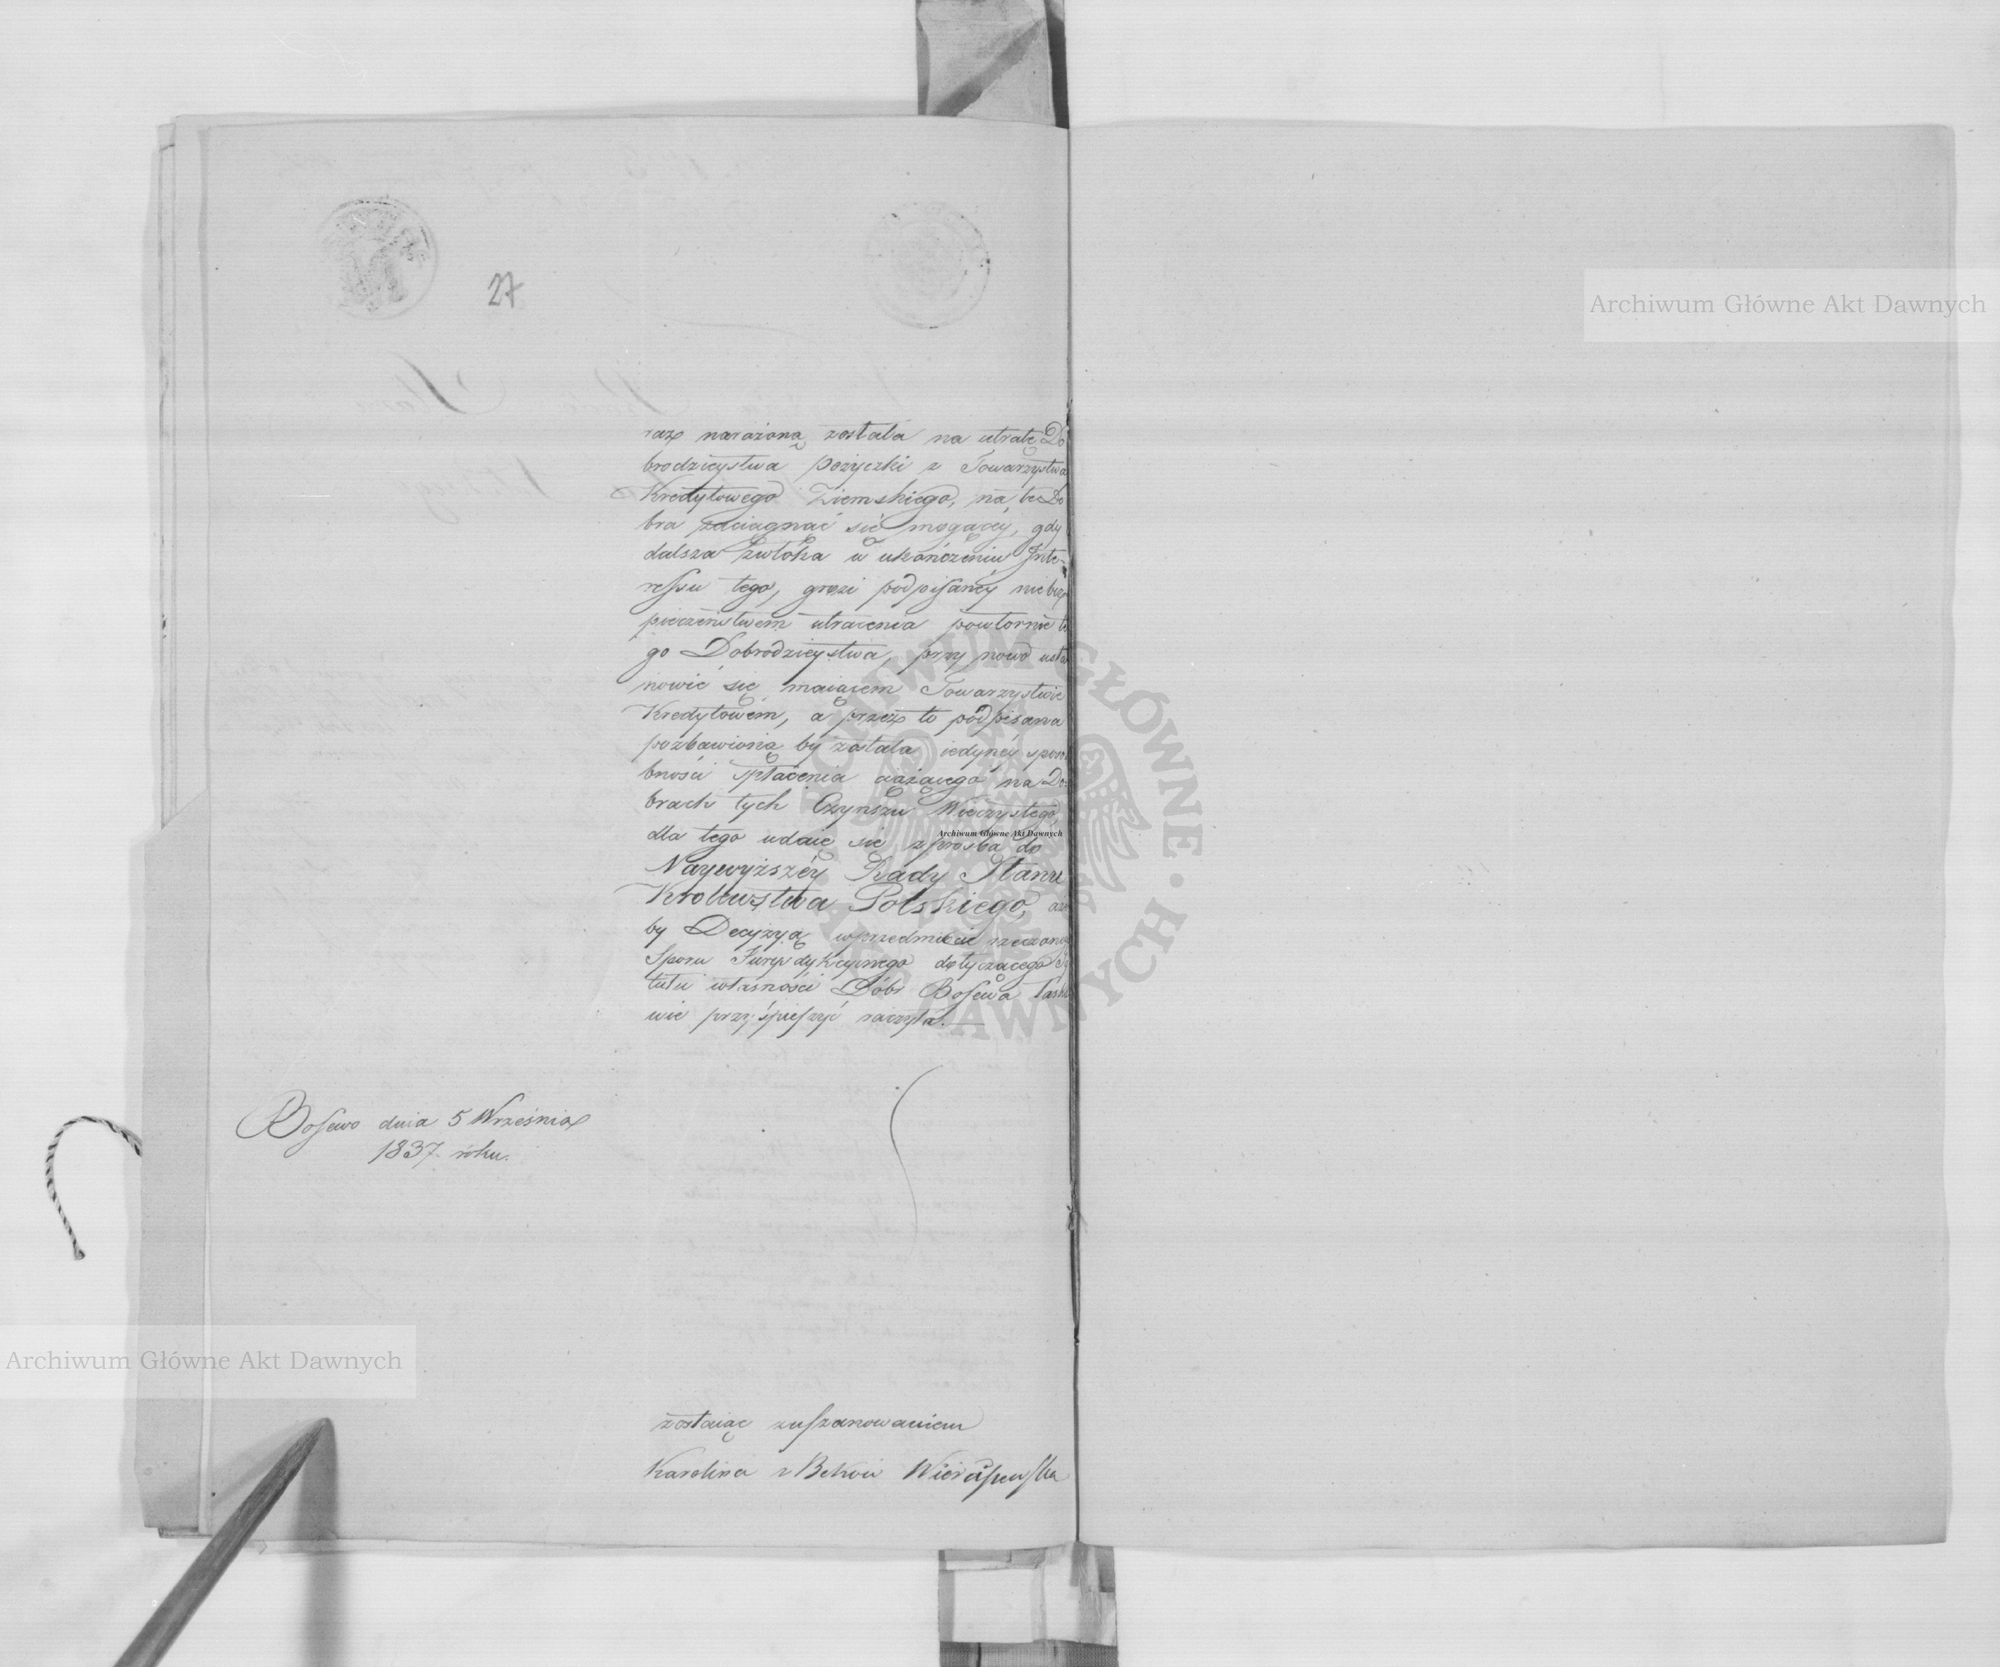 27
raz narażoną została na utratę Do
brodzieystwa pożyczki z Towarzystwa
Kredytowego Ziemskiego, na te Do
bra zaciągnąć się mogącey, gdy
dalsza zwłoka w ukończeniu Inte-
ressu tego, grozi podpisaney niebez
pieczeństwem utracenia powtornie te
go Dobrodzieystwa, przy nowo usta
nowić się maiącem Towarzystwie
Kredytowém, a przez to podpisana
pozbawioną by została iedynéy sposo
bności spłacenia ciążącego na Do-
brach tych Czynszu Wieczystego,
dla tego udaie się z prosbą do
Naywyższéy Rady Stanu
Krolewstwa Polskiego, aże
by Decyzyą wprzedmiocie rzeczonego
Sporu Jurysdykcyinego dotyczącego Ty
tułu własności Dóbr Bosewa łaska
wie przyśpieszyć raczyła.
Bosewo dnia 5 Września
1837 roku.
zostaiąc zuszanowaniem
Karolina z
Archiwum Główne Akt Dawnych
Archiwum Główne Akt Dawnych
Archiwum Główne Akt Dawnych